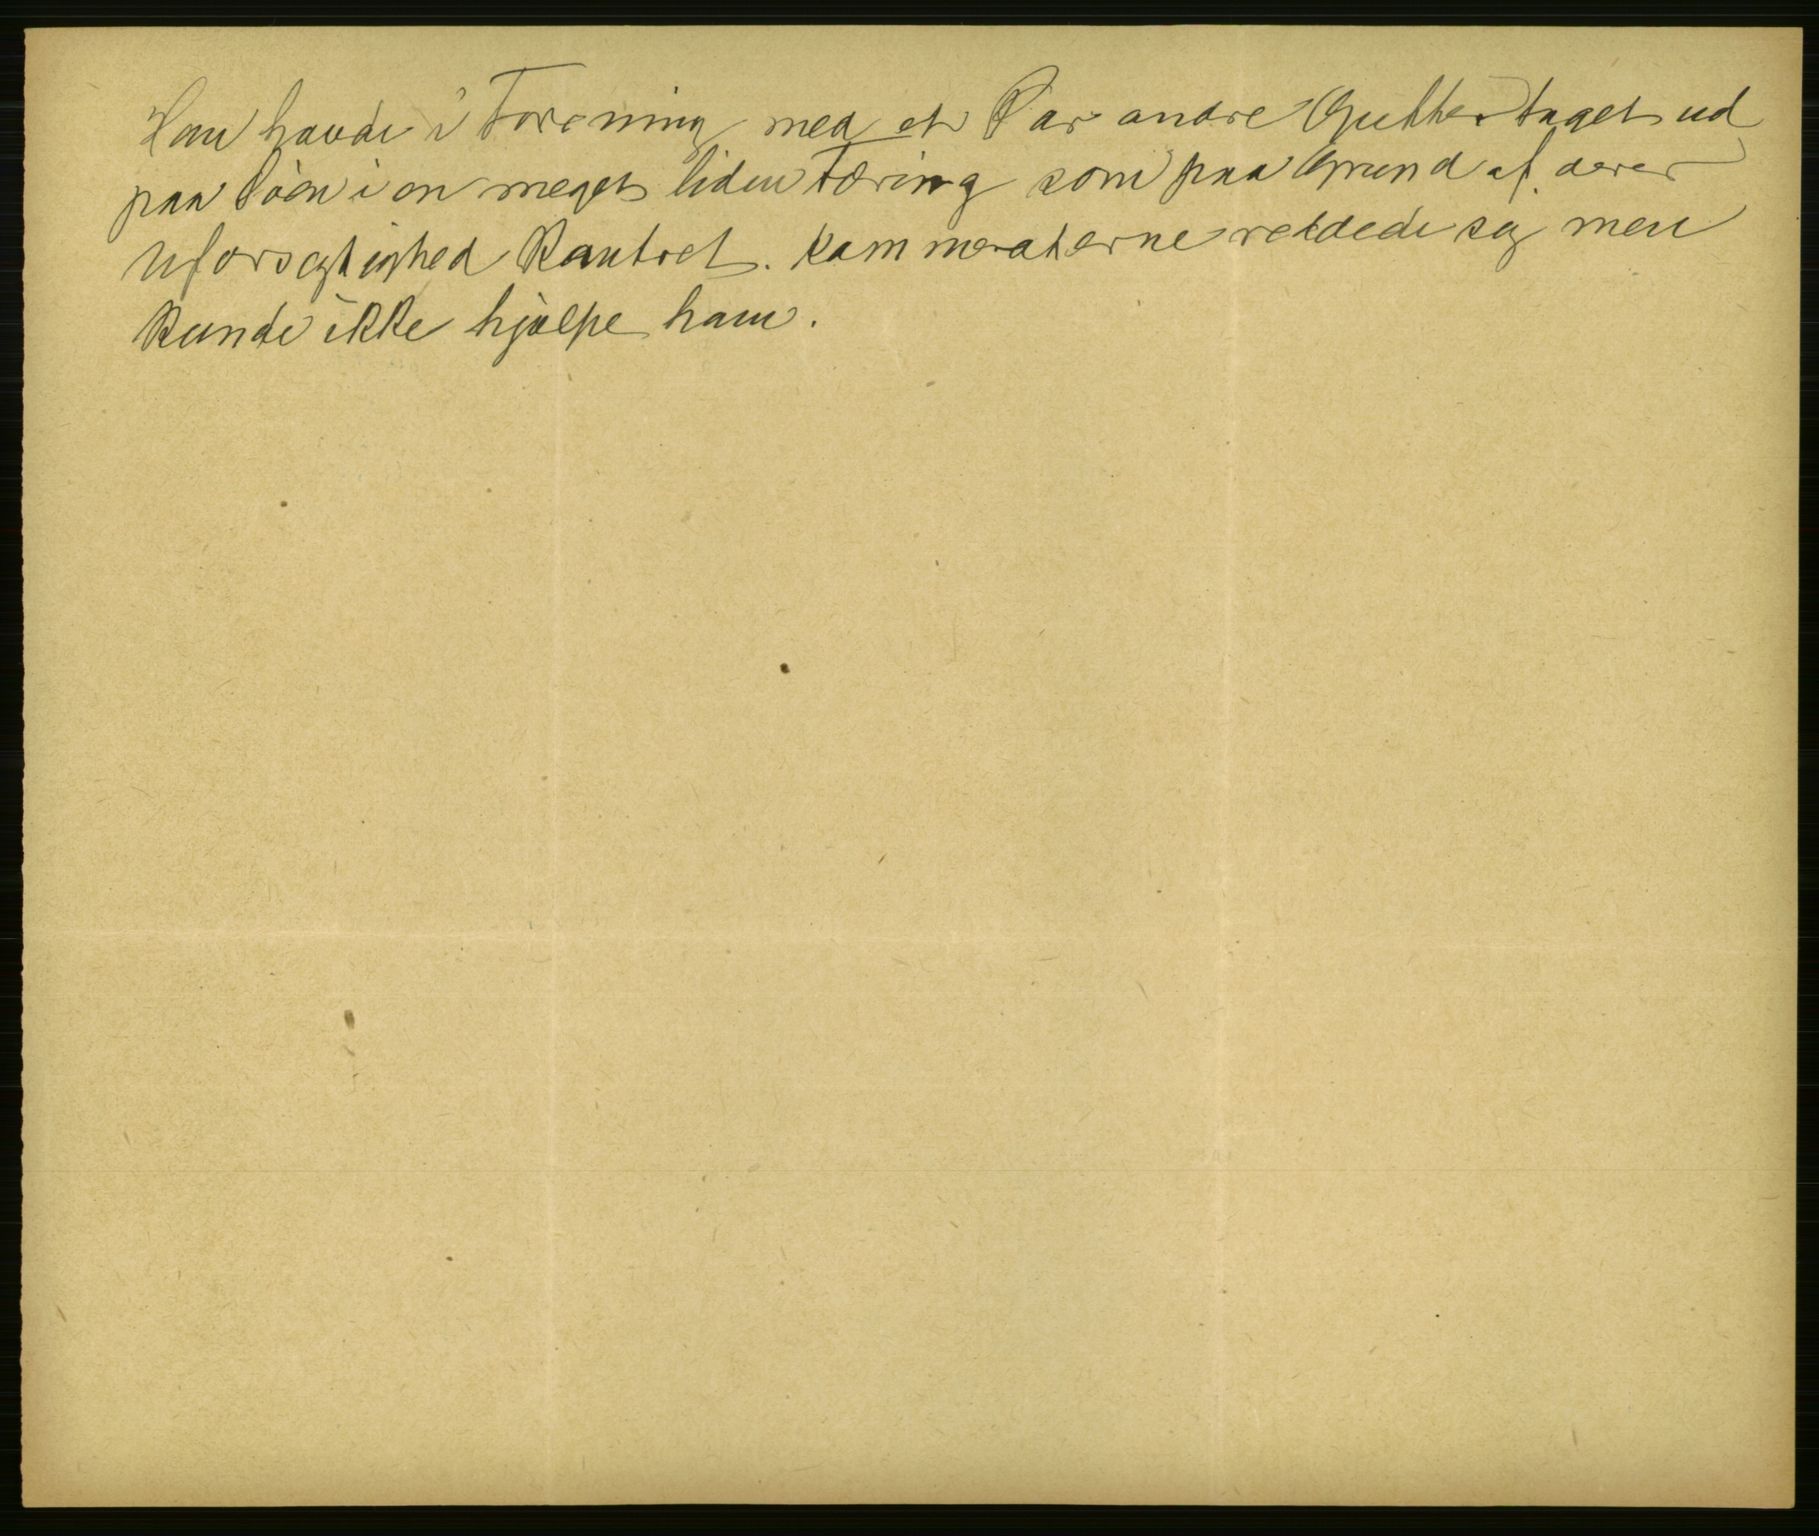 Han havde i Forening med et Par andre Gutter taget ud
paa Søen i en meget liden Færing som paa Grund af deres
Uforsigtighed kantret. Kammeraterne reddede sig men
kunde ikke hjælpe ham.